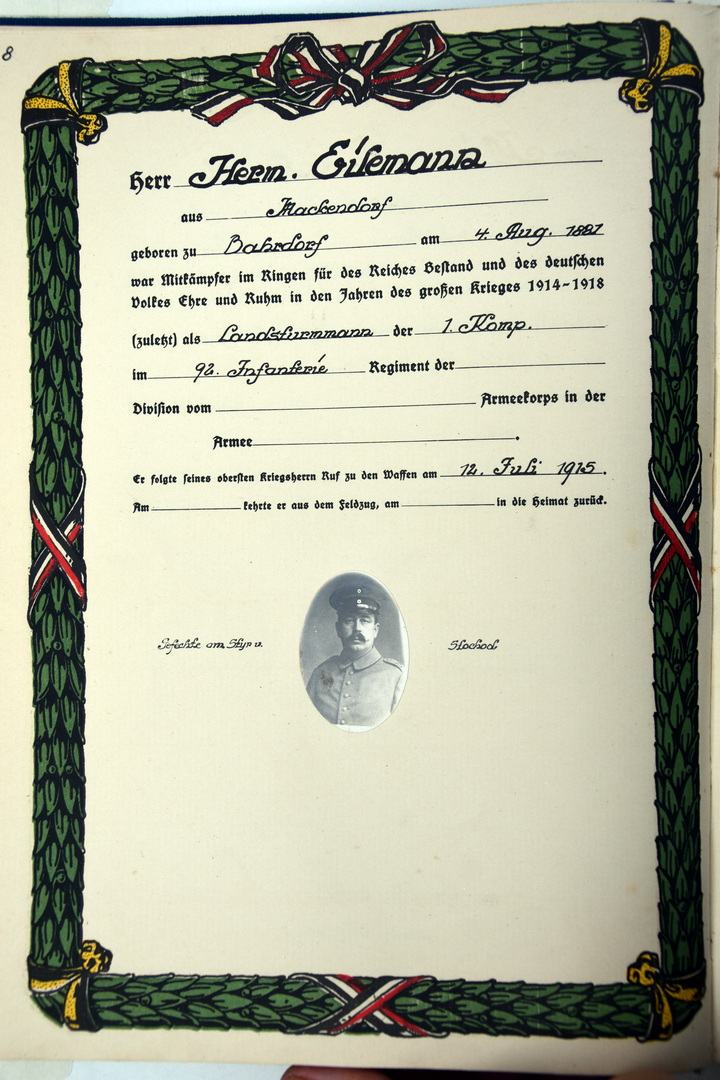 8
Herr Herm. Eilemann
aus Mackendorf
geboren zu Bahrdorf am 4. Aug. 1881
war Mitkämpfer im Ringen für des Reiches Bestand und des deutschen
Volkes Ehre und Ruhm in den Jahren des großen Krieges 1914-1918
(zuletzt) als Landsturmmann der 1. Komp.
im 92. Infanterie Regiment der
Division vom Armeekorps in der
Armee .
Er folgte seines obersten Kriegsherrn Ruf zu den Waffen am 12. Juli 1915.
Am kehrte er aus dem Feldzug, am in die Heimat zurück.
Gefechte am Styr u. Stochod